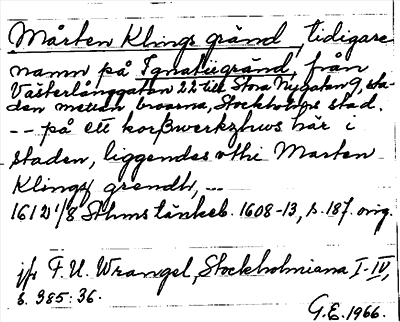 Mårten Klings gränd, tidigare
namn på Ignatiigränd, från
Västerlånggatan 22 till Stora Nygatan 9, sta-
den mellan broarna, Stockholms stad.
-- på ett korßwerkzhws här i
staden, liggendes vthi Marten
Klingz grendh, ...
1612 1/8 Sthms tänkeb. 1608-13, s. 187. orig.
jfr F. U. Wrangel, Stockholmiana I-IV,
s. 385: 36.
G.E. 1966.